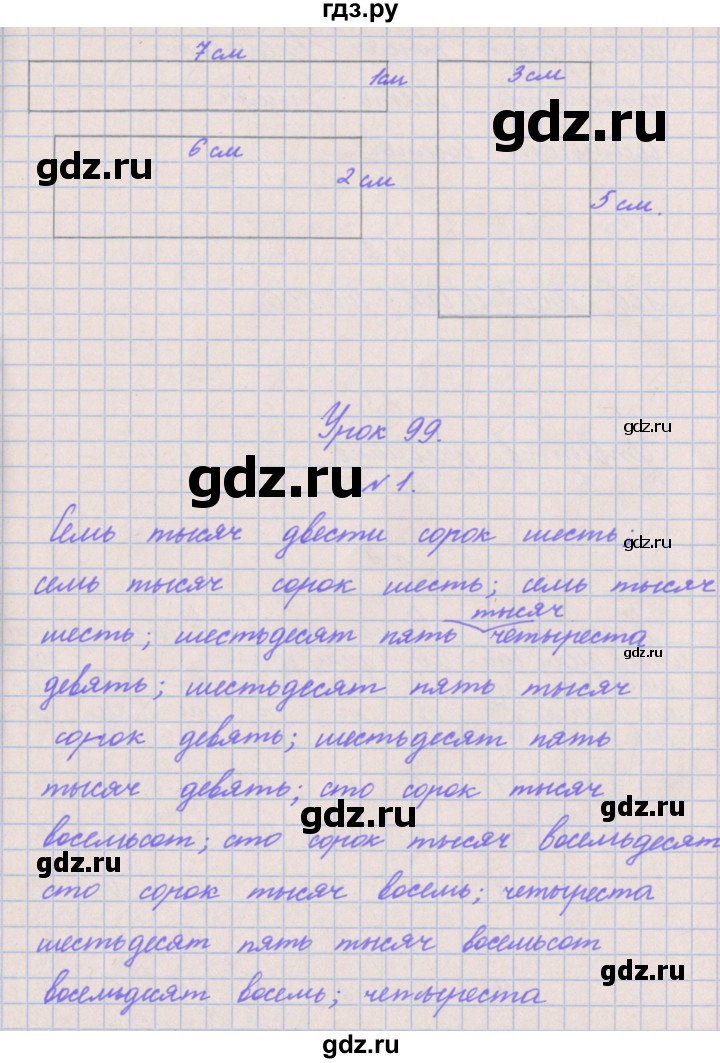 гдз.ру
7 см
1 см
3 см
gdz.ru
6 см
gdz.ru
2 см
5 см.
gdz.ru
Урок 99.
gdz.ru
gdz.ru
№ 1.
Семь тысяч двести сорок шесть;
gdz.ru
семь тысяч сорок шесть; семь тысяч
тысяч
шесть; шестьдесят пять четыреста
gdz.ru
девять; шестьдесят пять тысяч
сорок девять; шестьдесят пять
тысяч девять; сто сорок тысяч
gdz.ru
gdz.ru
восемьсот; сто сорок тысяч восемьдесят
gdz.ru
сто сорок тысяч восемь; четыреста
шестьдесят пять тысяч восемьсот
gdz.ru
восемьдесят восемь; четыреста
gdz.ru